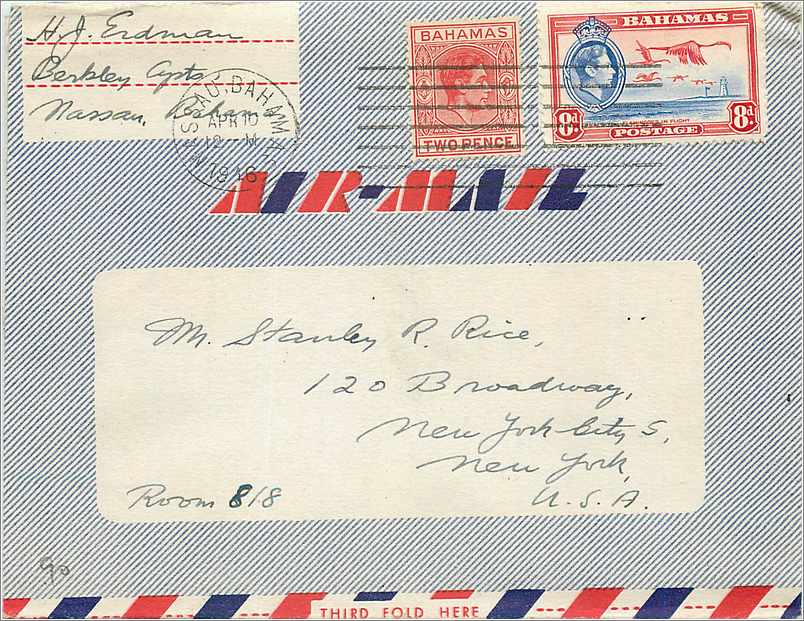 H. J. Erdman
Berkley Apts.
Nassau, Bahamas
NASSAU, BAHAMAS
APR 10
12 - M
1946
BAHAMAS
TWO PENCE
BAHAMAS
8d. 8d.
FLAMINGOES IN FLIGHT
POSTAGE
AIR-MAIL
Mr. Stanley R. Rice,
120 Broadway,
New York City 5,
New York,
Room 818 U. S. A.
90
THIRD FOLD HERE